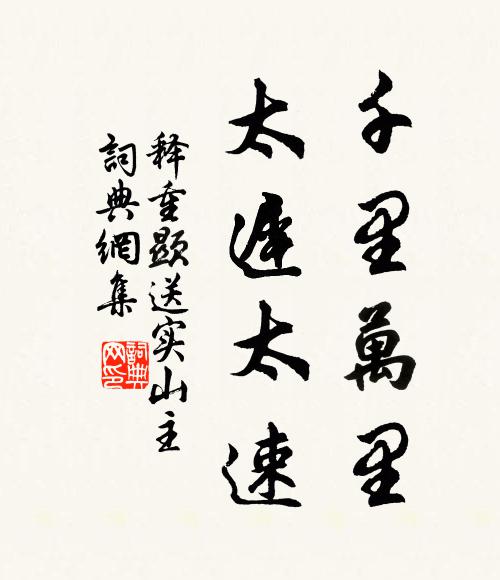 千里萬里
太遲太速
释重顯送实山主
詞典網集
詞典
网印